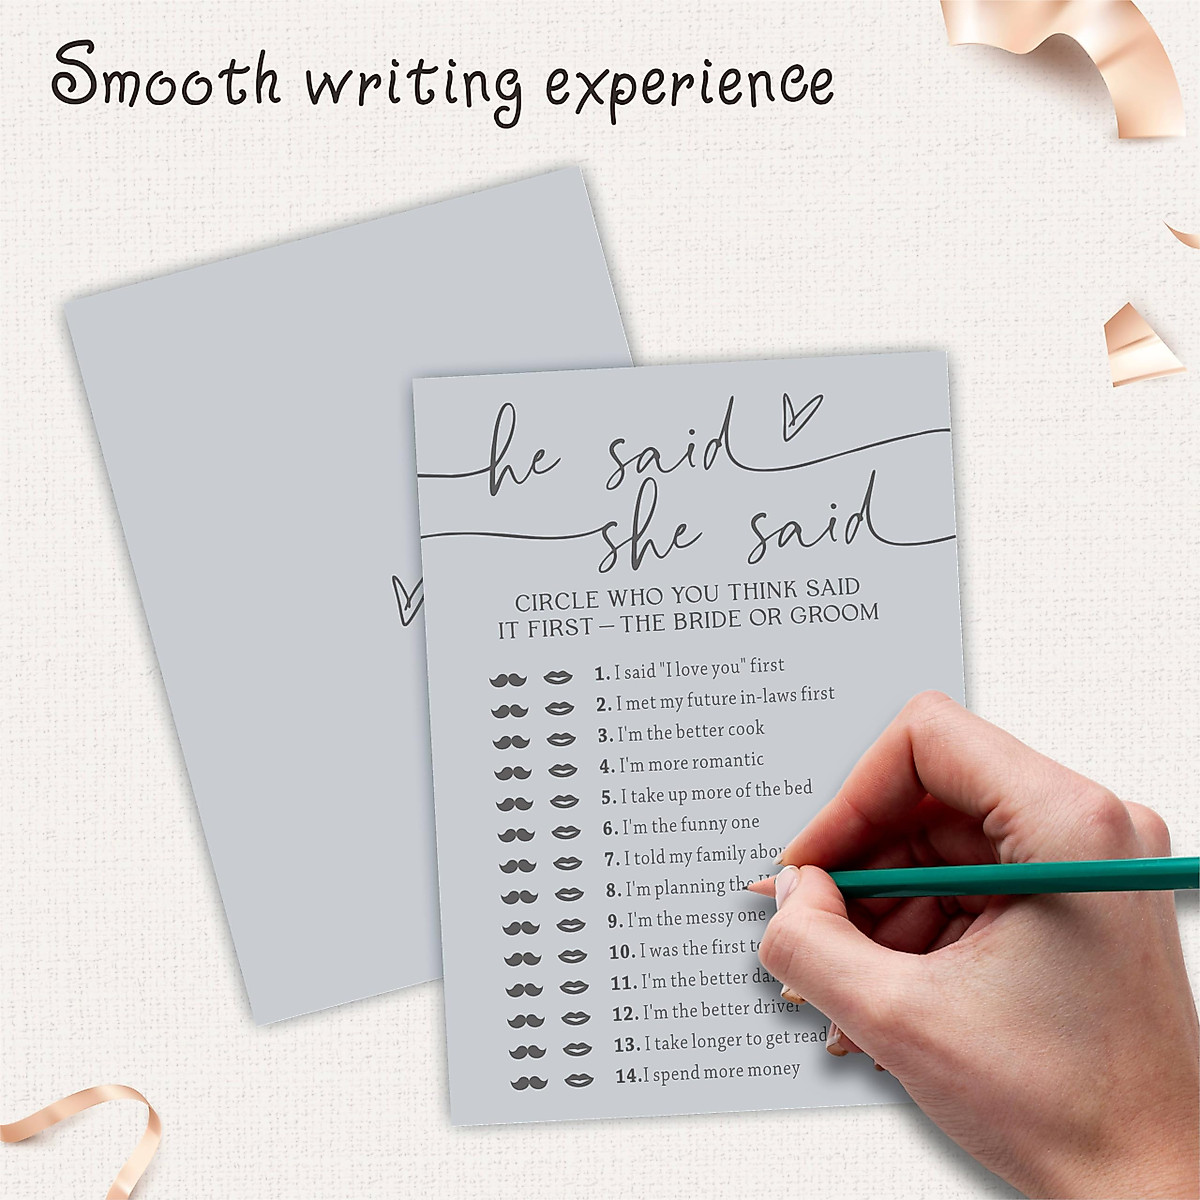 Smooth writing experience
he said
she said
CIRCLE WHO YOU THINK SAID
IT FIRST – THE BRIDE OR GROOM
1. I said "I love you" first
2. I met my future in-laws first
3. I'm the better cook
4. I'm more romantic
5. I take up more of the bed
6. I'm the funny one
7. I told my family
8. I'm planning the
9. I'm the messy one
10. I was the first
11. I'm the better
12. I'm the better driver
13. I take longer to get
14.I spend more money